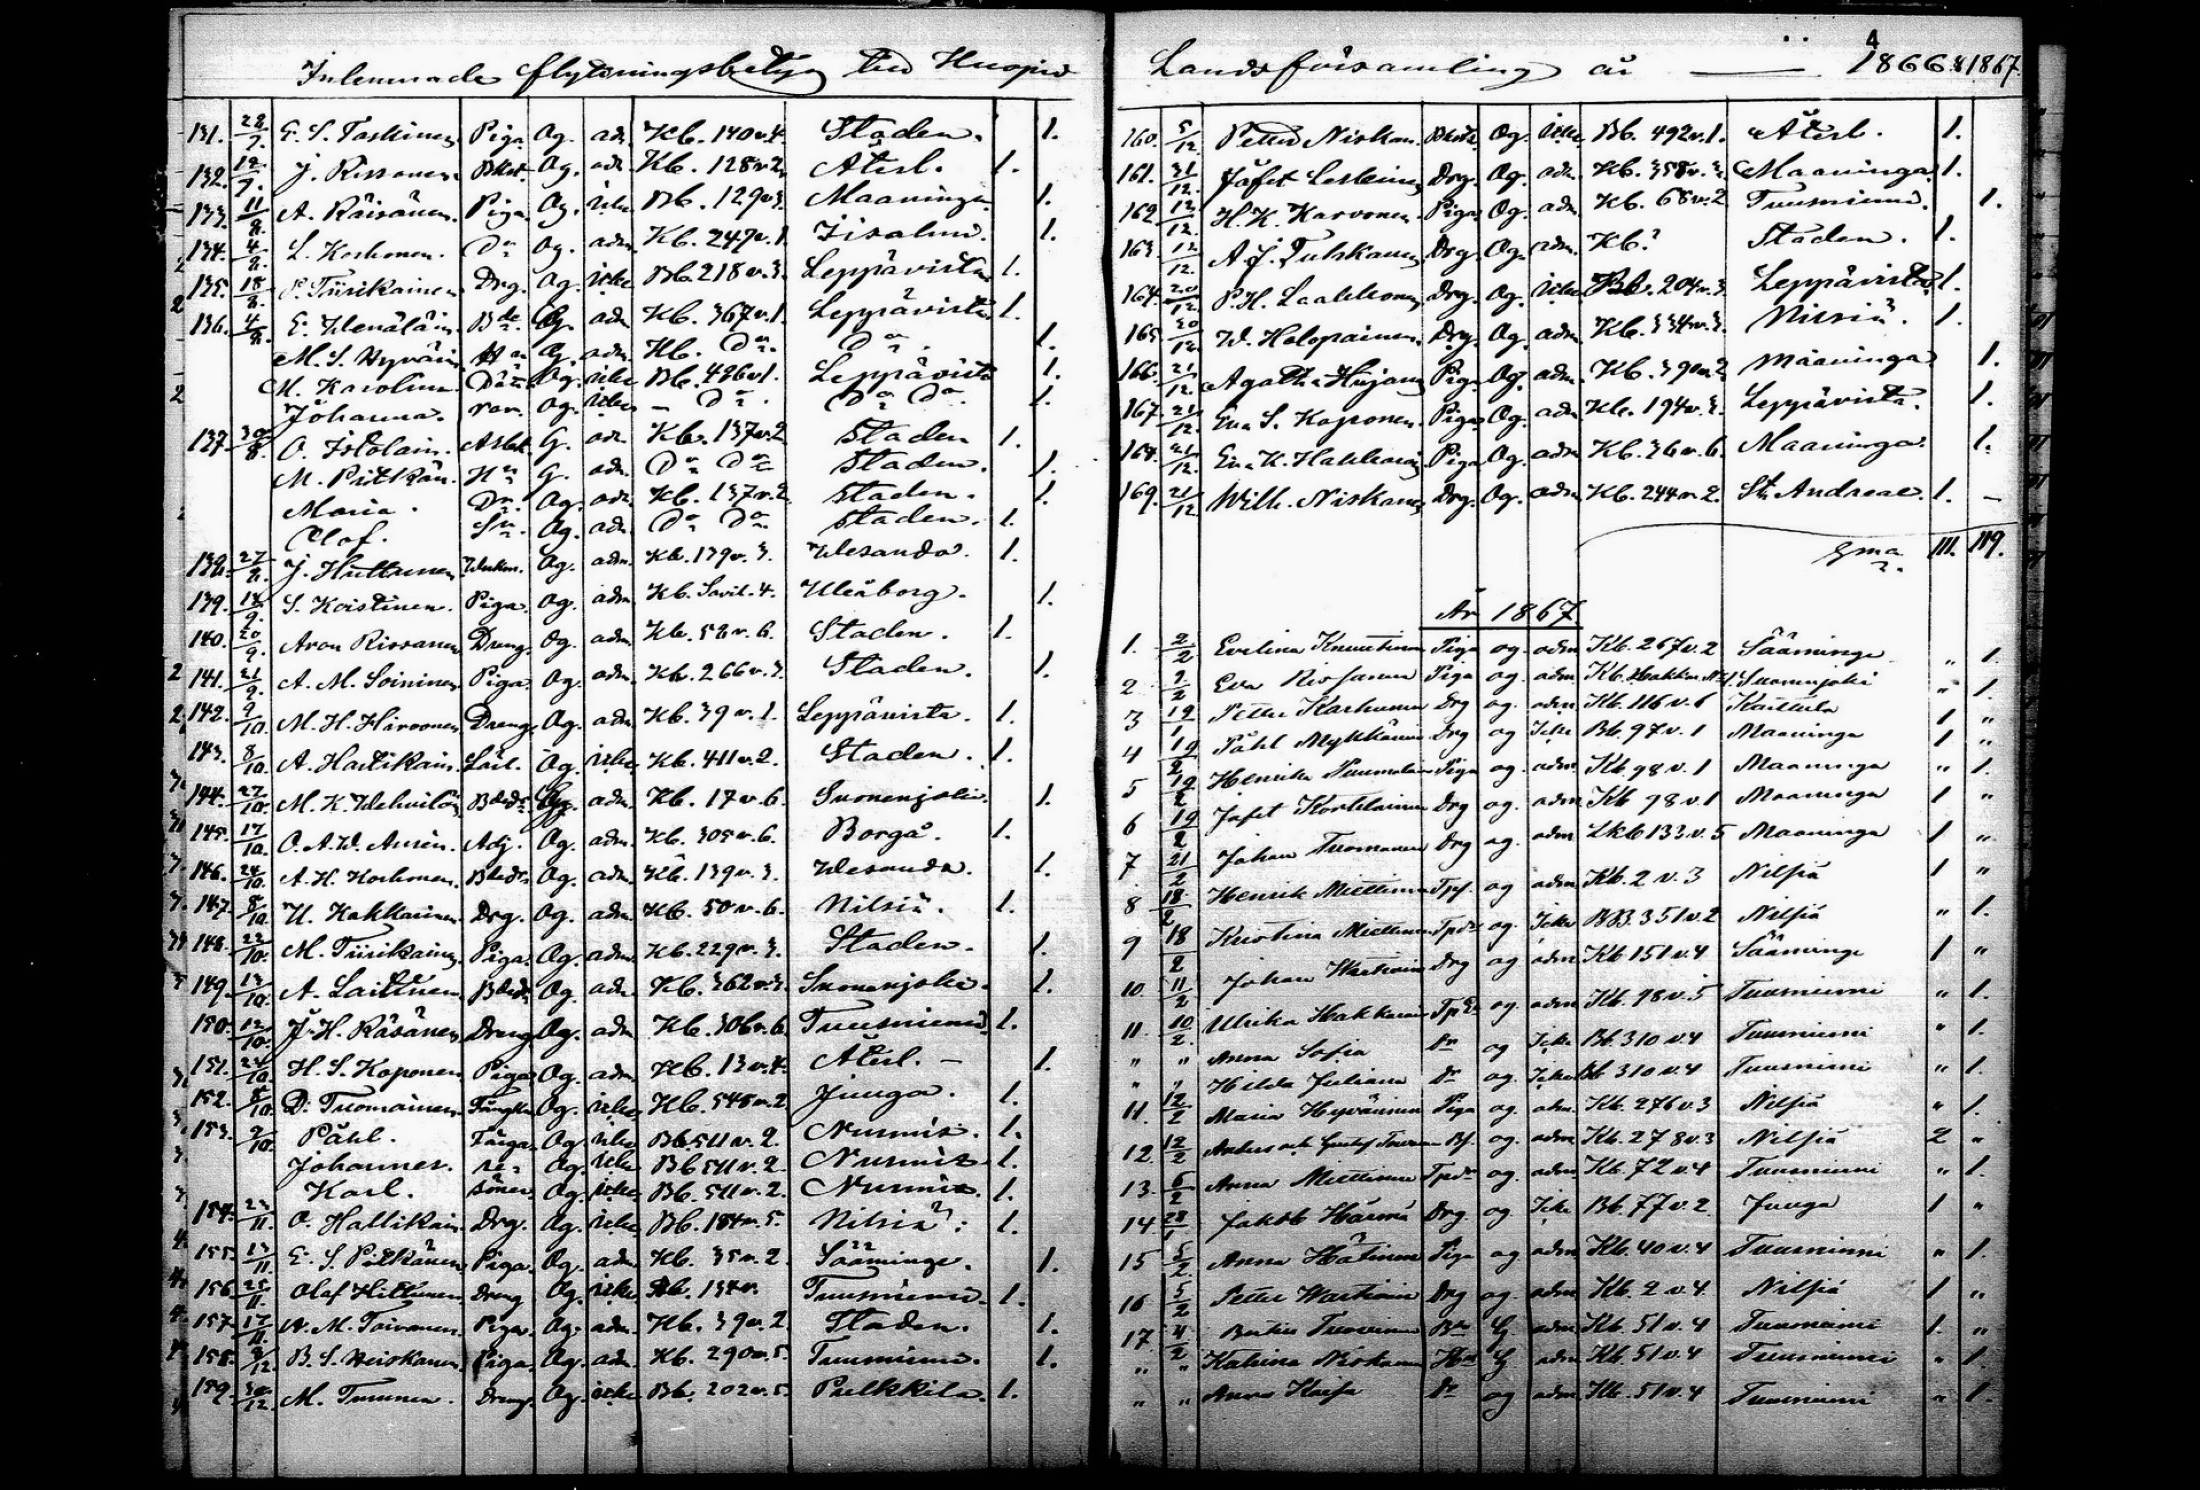 Inlemnade flyttningsbetyg till Kuopio
131. 22/7. E. S. Taskinen Piga Og. adm. Kb. 140 v. 4. Staden. 1.
132. 12/7. J. Rissanen Og. adm. Kb. 128 v. 2. Återl. 1.
133. 11/8. A. Räisänen. Piga Og. icke Bb. 129 v. 3. Maaninga. 1.
134. 4/8. L. Korhonen. Do Og. adm. Kb. 247 v. 1. Iisalmi. 1.
135. 18/8. P. Tiirikainen Drg. Og. icke Bb. 218 v. 3. Leppävirta 1.
136. 4/8. E. Wenäläin. Bde G. adm. Kb. 367 v. 1. Leppävirta. 1.
M. S. Hyvärin Hu G. adm. Kb. Do. Do. 1.
M. Karolina. Og. icke Bb. 426 v 1. Leppävirta 1.
Johanna. Og. icke – Do. Do Do. 1.
137. 30/8. O. Istolain. G. adm. Kb. 137 v. 2 Staden 1.
M. Pitkän. Hu G. adm. Do Do Staden. 1.
Maria. Dr. Og. adm. Kb. 137 v. 2. Staden. 1.
Olof. Sn. Og. adm. Do Do. Staden. 1.
138. 27/8. J. Huttunen Og. adm. Kb. 139 v. 3. Wesanda. 1.
139. 12/9. S. Koistinen. Piga. Og. adm. Kb. Savil. 4. Uleåborg. 1.
140. 20/9. Aron Rissanen Dreng. Og. adm. Kb. 52 v. 6. Staden. 1.
141. 21/9. A. M. Soininen Piga. Og. adm. Kb. 266 v. 3. Staden. 1.
142. 9/10. M. H. Hirvonen Dreng. Og. adm. Kb. 39 v. 1. Leppävirta. 1.
143. 8/10. A. Hartikain. Lärl. Og. icke Kb. 411 v. 2. Staden. 1.
144. 27/10. M. K. Wehvilä adm. Kb. 17 v. 6. Suonenjoki. 1.
145. 17/10. O. A. W. Adj. Og. adm. Kb. 305 v. 6. Borgå. 1.
146. 24/10. A. H. Korhonen. Og. adm. Kb. 139 v. 3. Wesanda. 1.
147. 8/10. U. Kakkainen Drg. Og. adm. Kb. 50 v. 6. Nilsiä. 1.
148. 22/10. M. Tiirikainen Piga. Og. adm. Kb. 229 v. 3. Staden. 1.
149. 13/10. A. Laitinen Og. adm. Kb. 362 v. 3. Suonenjoki. 1.
150. 12/10. J. H. Räsänen Dreng Og. adm. Kb. 306 v. 6. Tuusniemi. 1.
151. 24/10. H. S. Koponen Piga Og. adm. Kb. 13 v. 4. Återl. – 1.
152. 8/10. D. Tuomainen Og. icke Kb. 548 v. 2 Juuga. 1.
153. 2/10. Påhl. Og. icke Bb 511 v. 2. Nurmis. 1.
Johannes. Og. icke Bb 511 v. 2. Nurmis 1.
Karl. söner Og. icke Bb. 511 v. 2. Nurmis. 1.
154. 23/11. O. Hallikain Drg. Og. icke Bb. 184 v. 5. Nilsiä. 1.
155. 13/11. E. S. Pitkänen Piga Og. adm. Kb. 35 v. 2. Sääminge. 1.
156. 25/11. Olof Hiltunen Dreng Og. icke Bb. 134 v. Tuusniemi. 1.
157. 17/11. A. M. Toivanen. Piga Og. adm. Kb. 39 v. 2 Staden. 1.
158. 9/12. B. S. Heiskanen Piga Og. adm. Kb. 290 v. 5. Tuusniemi. 1.
159. 30/12. M. Tuunen. Dreng. Og. icke Bb. 202 v. 5. Pulkkila. 1.
Landsförsamling år —— 1866 & 1867.
4
160. 5/12. Petter Niskan. Og. icke Bb. 492 v. 1. Återl. 1.
161. 31/12. Jåfet Leskinen Drg. Og. adm. Kb. 358 v. 3. Maaninga 1.
162. 12/12. H. K. Karvonen. Piga Og. adm. Kb. 68 v. 2 Tuusniemi. 1.
163. 12/12. A. J. Tulskanen Drg. Og. adm. Kb. ? Staden. 1.
164. 20/12. P. H. Laakkonen Drg. Og. icke Bb. 204 v. 3. Leppävirta 1.
165. 30/12. W. Holopainen. Drg. Og. adm. Kb. 334 v. 3. Nilsiä. 1.
166. 21/12. Agatha Hujan Piga Og. adm. Kb. 390 v. 2 Maaninga 1.
167. 21/12. Eva S. Koponen. Piga Og. adm. Kb. 194 v. 3. Leppävirta. 1.
168. 21/12. Eva K. Hakkarai Piga Og. adm. Kb. 36 v. 6. Maaninga. 1.
169. 21/12. Wilh. Niskanen Drg. Og. adm. Kb. 244 v. 2. St. Andreae. 1. –
Sma 111. 119.
År 1867
1. 2/2 Evelina Knuutinen Piga og. adm Kb. 267 v. 2 Sääminge „ 1.
2 9/2 Eva Rissanen Piga og. adm Kb. Suonenjoki „ 1.
3 19/1 Petter Karhunen Drg og. adm. Kb. 116 v. 6 Karttula 1 „
4 19/2 Påhl Mykkänen Drg og Icke Bb. 97 v. 1 Maaninga 1 „
5 19/2 Henrika Piga og. adm. Kb. 98 v. 1 Maaninga „ 1.
6 19/2 Jafet Kortelainen Drg og. adm Kb 98 v 1 Maaninga 1 „
7 21/2 Johan Tuomanen Drg og. adm. Lkb 133 v. 5 Maaninga 1 „
8 18/2 Henrik Miettinen og adm. Kb. 2 v. 3 Nilsiä 1 „
9 18/2 Kristina Miettinen og. Icke Bb. 351 v. 2 Nilsiä „ 1.
10. 11/2 Johan Wartiain Drg og adm Kb 151 v. 4 Sääminge 1 „
11. 10/2 Ulrika Hakkarain og. adm. Kb. 98 v. 5 Tuusniemi „ 1.
„ „ Anna Sofia Dr og Icke Bb. 310 v. 4 Tuusniemi „ 1.
„ „ Hilda Juliana Dr og. Icke Bb 310 v. 4 Tuusniemi „ 1.
11. 12/2 Maria Hyvärinen Piga og. adm. Kb. 276 v. 3 Nilsiä „ 1.
12. 12/2 Anders och Gustaf og. adm. Kb. 278 v. 3 Nilsiä 2 „
13. 6/2 Anna Miettinen og. adm Kb. 72 v. 4 Tuusniemi „ 1.
14 28/1 Jakob Härmä Drg og. Icke Bb. 77 v. 2. Juuga 1 „
15 5/2 Anna Hätinen Piga og adm Kb. 40 v. 4 Tuusniemi „ 1.
16 5/2 Petter Wartiain Drg og. adm Kb. 2 v. 4. Nilsiä 1 „
17. 4/2 G adm Kb. 51 v. 4 Tuusniemi 1. „
„ „ Katrina Niskanen Hu G adm Kb. 51 v. 4 Tuusniemi „ 1.
„ „ Anna Kaisa Dr og adm Kb. 51 v. 4 Tuusniemi „ 1.